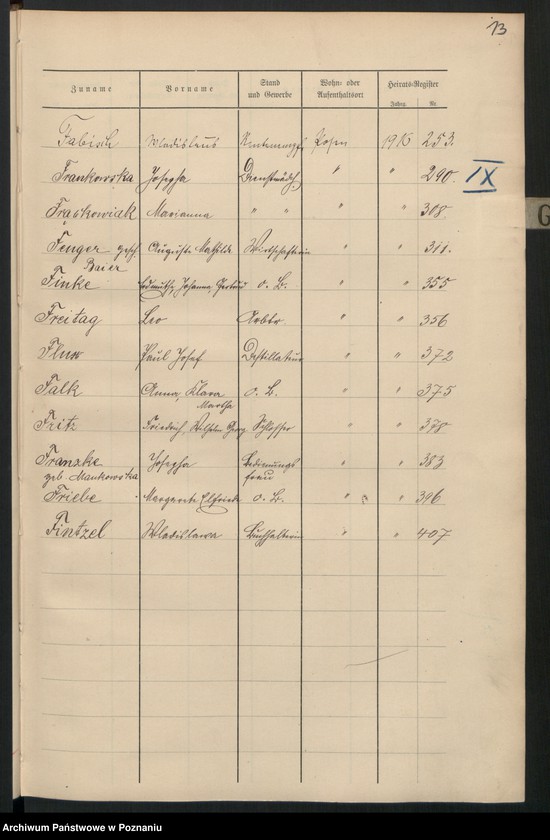 13
Zuname Vorname Stand und Gewerbe Wohn- oder Aufenthaltsort Heirats-Register
Jahrg. Nr.
Fabisch Wladislaus Rentenempf. Posen 1916 253.
Frankowska Josepha Dienstmädch. " " 290. IX
Frąskowiak Marianna " " " " 308.
Fenger gesch. Auguste Mathilde Wirtschafterin " " 311.
Baier
Finke Johanna, Gertrud o. B. " " 355
Freitag Leo Arbtr. " " 356
Paul Josef Destillateur " " 372
Falk Anna, Klara o. B. " " 375
Martha
Fritz Friedrich, Wilhelm Georg Schlosser " " 378
Franzke Josepha Bedienungs " " 383
geb. Mankowska frau
Friebe Margarete Elfriede o. B. " " 396
Fintzel Wladislawa Buchhalterin " " 407
G
Archiwum Państwowe w Poznaniu